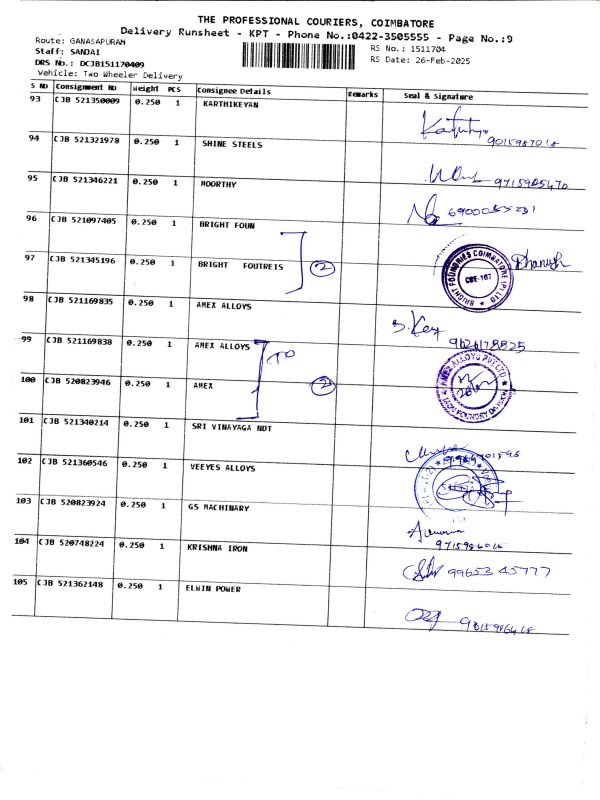 THE PROFESSIONAL COURIERS, COIMBATORE
Delivery Runsheet - KPT - Phone No.:0422-3505555 - Page No.:9
Route: GANASAPURAM
RS No.: 1511704
Staff: SANJAI
RS Date: 26-Feb-2025
DRS No.: DCJB151170409
Vehicle: Two Wheeler Delivery
S No Consignment No Weight PCS Consignee Details Remarks Seal & Signature
93 CJB 521350009 0.250 1 KARTHIKEYAN
94 CJB 521321978 0.250 1 SHINE STEELS
95 CJB 521346221 0.250 1 MOORTHY
96 CJB 521097405 0.250 1 BRIGHT FOUN
97 CJB 521345196 0.250 1 BRIGHT FOUTREIS 2
BRIGHT FOUNDRIES COIMBATORE (P) LTD
CBE-107
98 CJB 521169835 0.250 1 AMEX ALLOYS
9626178825
99 CJB 521169838 0.250 1 AMEX ALLOYS TO
100 CJB 520823946 0.250 1 AMEX 2
101 CJB 521340214 0.250 1 SRI VINAYAGA NDT
102 CJB 521360546 0.250 1 VEEYES ALLOYS
103 CJB 520823924 0.250 1 GS MACHINARY
104 CJB 520748224 0.250 1 KRISHNA IRON
99653 45777
105 CJB 521362148 0.250 1 ELWIN POWER